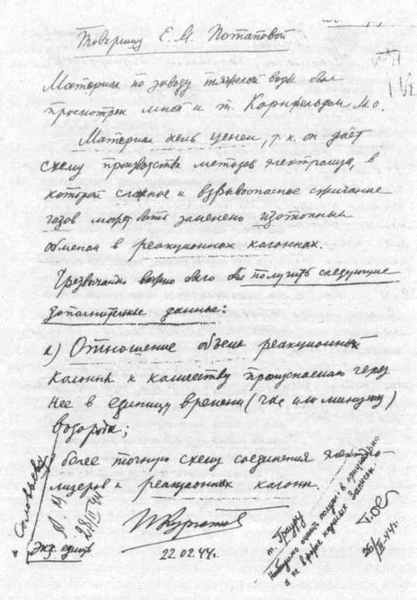 Товарищу Е.М. Потаповой
Материал по заводу тяжелой воды был
просмотрен мной и т. Корнфельдом М.О.
Материал очень ценен, т.к. он даёт
схему производства методом электролиза, в
которой сложное и взрывоопасное сжигание
газов может быть заменено изотопным
обменом в реакционных колоннах.
Чрезвычайно важно было бы получить следующие
дополнительные данные:
а) Отношение объема реакционной
колонны к количеству пропускаемого через
нее в единицу времени (час или минуту)
водорода;
более точную схему соединения электро-
лизеров и реакционных колонн.
И Курчатов
22.02.44.
Экз. един
28/II 44